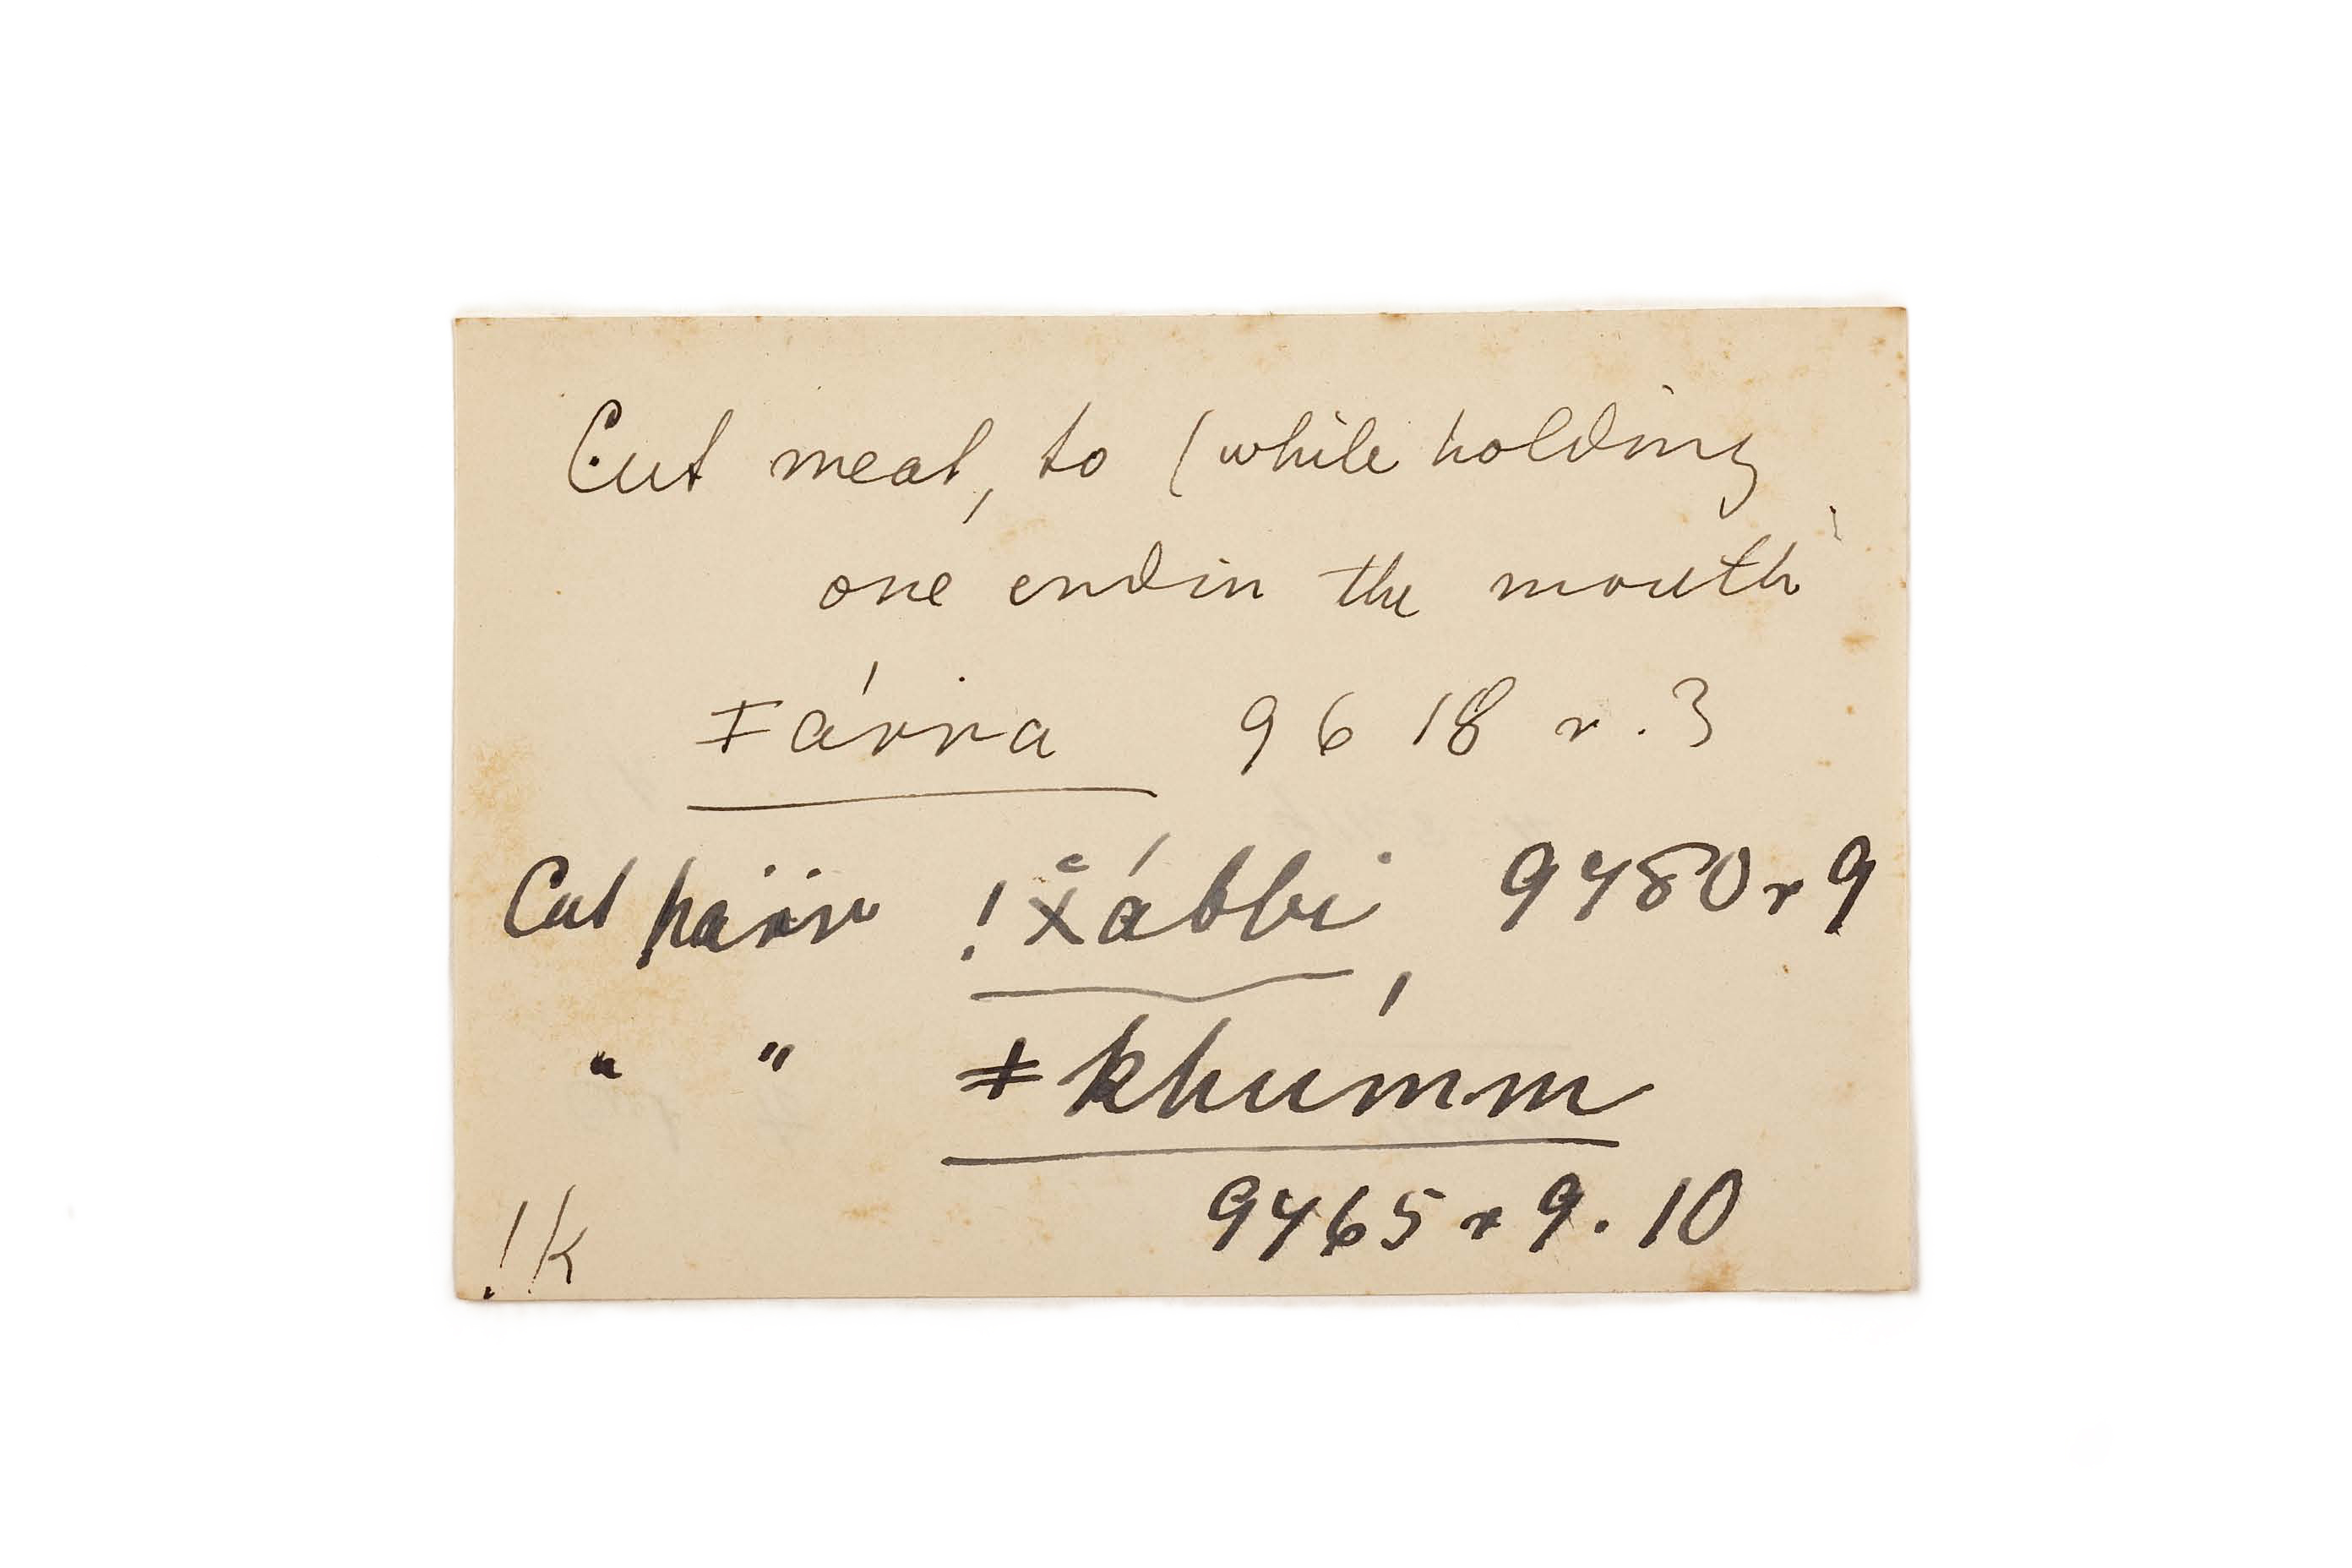 Cut meat, to (while holding
one end in the mouth)
ǂárra 9618 r. 3
Cut hair !x̆ábbi 9480 r 9
" " ǂkhúmm
9465 r 9. 10
!k